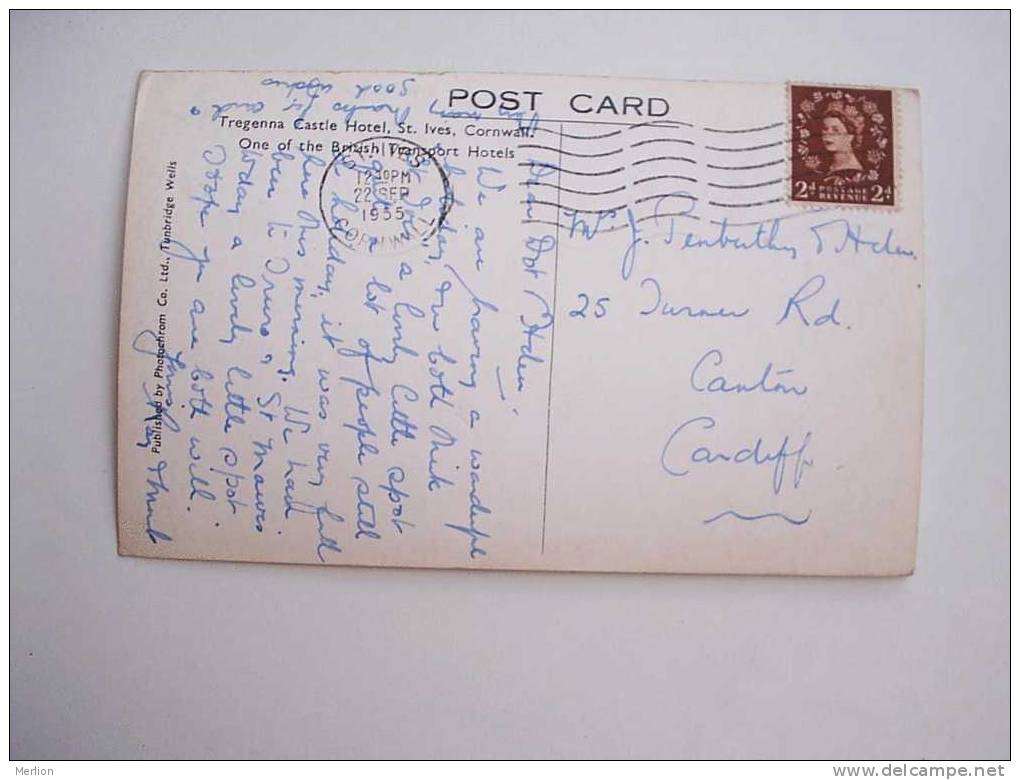 POST CARD
Tregenna Castle Hotel, St. Ives, Cornwall.
One of the British Transport Hotels
Published by Photochrom Co. Ltd., Tunbridge Wells
12 30 PM
22 SEP
1955
CORNWALL
2d POSTAGE REVENUE 2d
Dear Dot & Helen,
We are having a wonderful
holiday, we both think
a lovely little spot
a lot of people still
holiday, it was very full
here this morning. We have
been to Truro & St Mawes
today a lovely little spot
Hope you are both well.
thanks for card &
good wishes
J. Penberthy & Helen
25 Turner Rd.
Canton
Cardiff
Merlion
www.delcampe.net